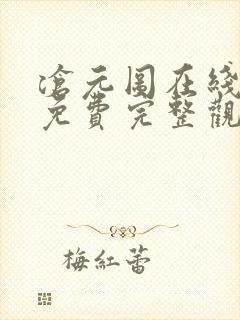 滄元图在綫
免費完整觀
梅紅蕾